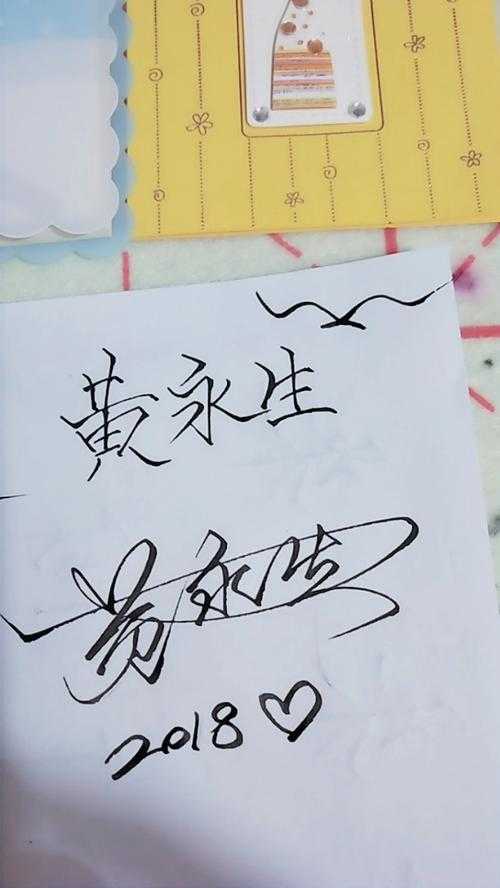 黄永生
黄永生
2018♡